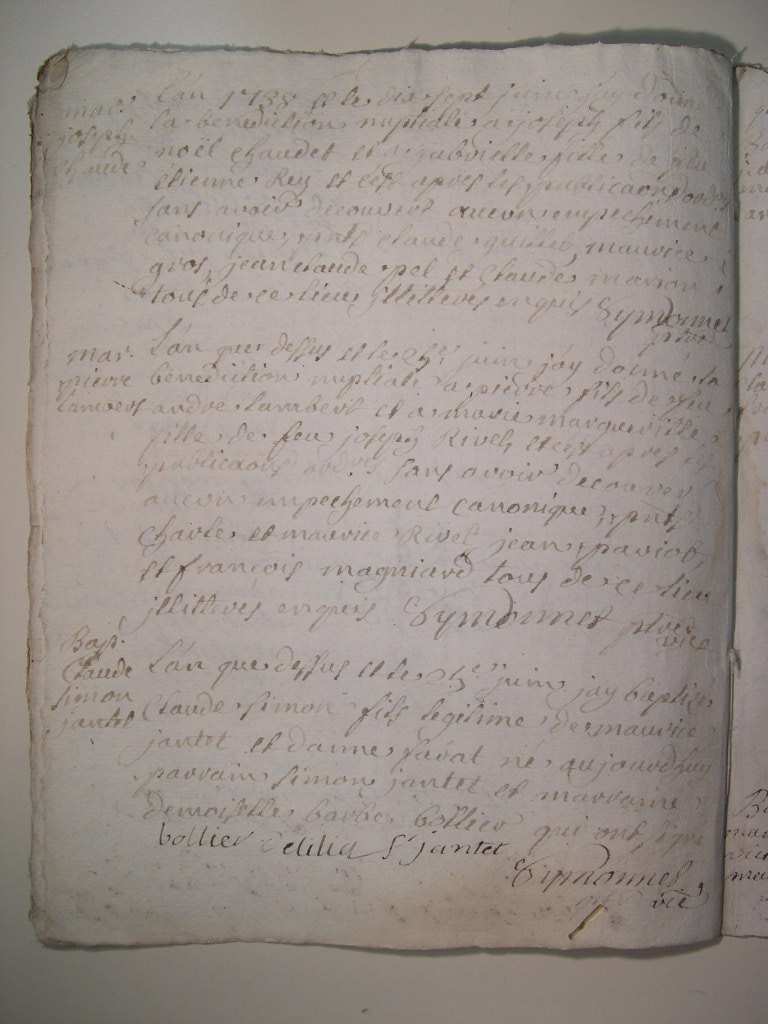 mar.
joseph
chaude
L'an 1738 et le dix sept juin j'ay donné
la benediction nuptiale a joseph fils de
noël chaudet et a gabrielle fille de feu
etienne Rey et c'est apres les publicaons
sans avoir decouvert aucun empechement
canonique, pnts claude quilles, maurice
gros, jean claude pel et claude marion
tous de ce lieu jllitteres enquis Eymonnet
ptre
mar.
pierre
lambert
L'an que dessus et le 25e juin j'ay donné la
benediction nuptiale a pierre fils de feu
andré lambert et a marie marguerite
fille de feu joseph Rivet et c'est apres les
publicaons sans avoir decouver
aucun empechement canonique, pnts
charle et maurice Rivet jean paviot
et françois magniard tous de ce lieu
jllitteres enquis Eymonnet ptre
vice
Bapt.
Claude
simon
jantet
L'an que dessus et le 25e juin jay baptisé
Claude simon fils legitime de maurice
jantet et danne favat né aujourdhuy
parrain simon jantet et marraine
demoiselle barbe bollier qui ont signé
bollier S jantet
Eymonnet
vic